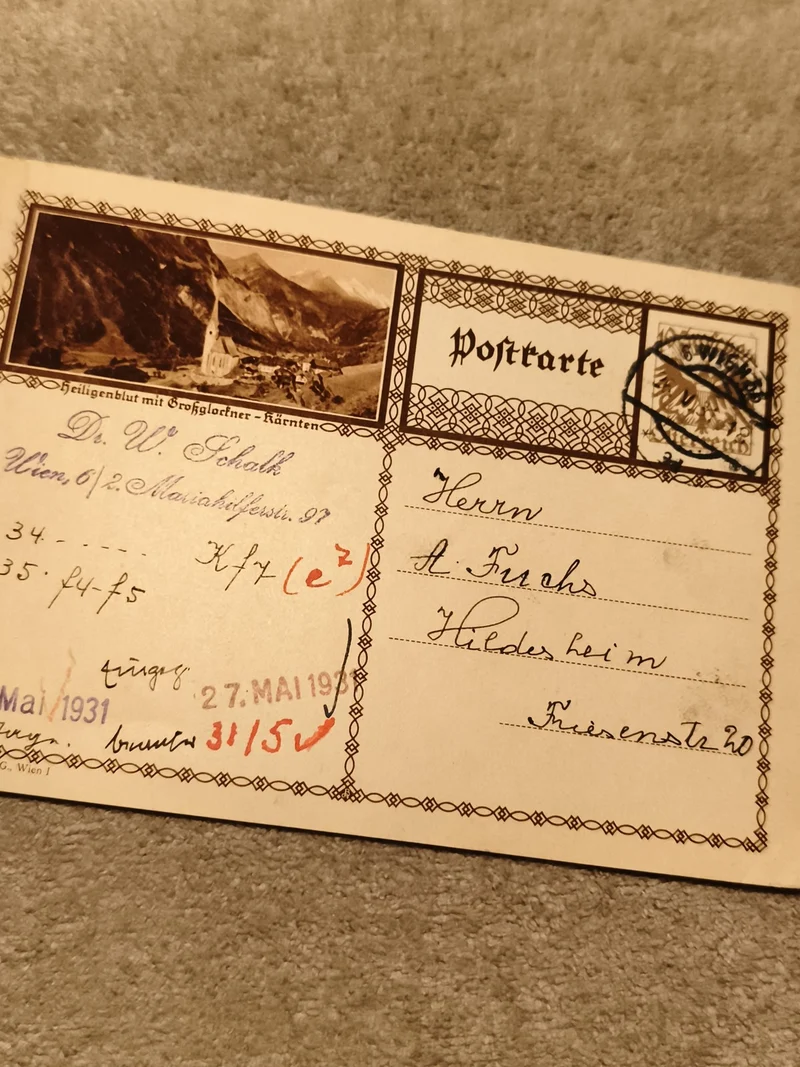 Heiligenblut mit Großglockner - Kärnten
Postkarte
Dr. W. Schalk
Wien, 6/2. Mariahilferstr. 97
34 - - - - - Kf7 (e7)
35. f4-f5
Eingeg. 27. MAI 1931
Mai 1931
31/5
G., Wien I
Herrn
A. Fuchs
Hildesheim
Friesenstr 20